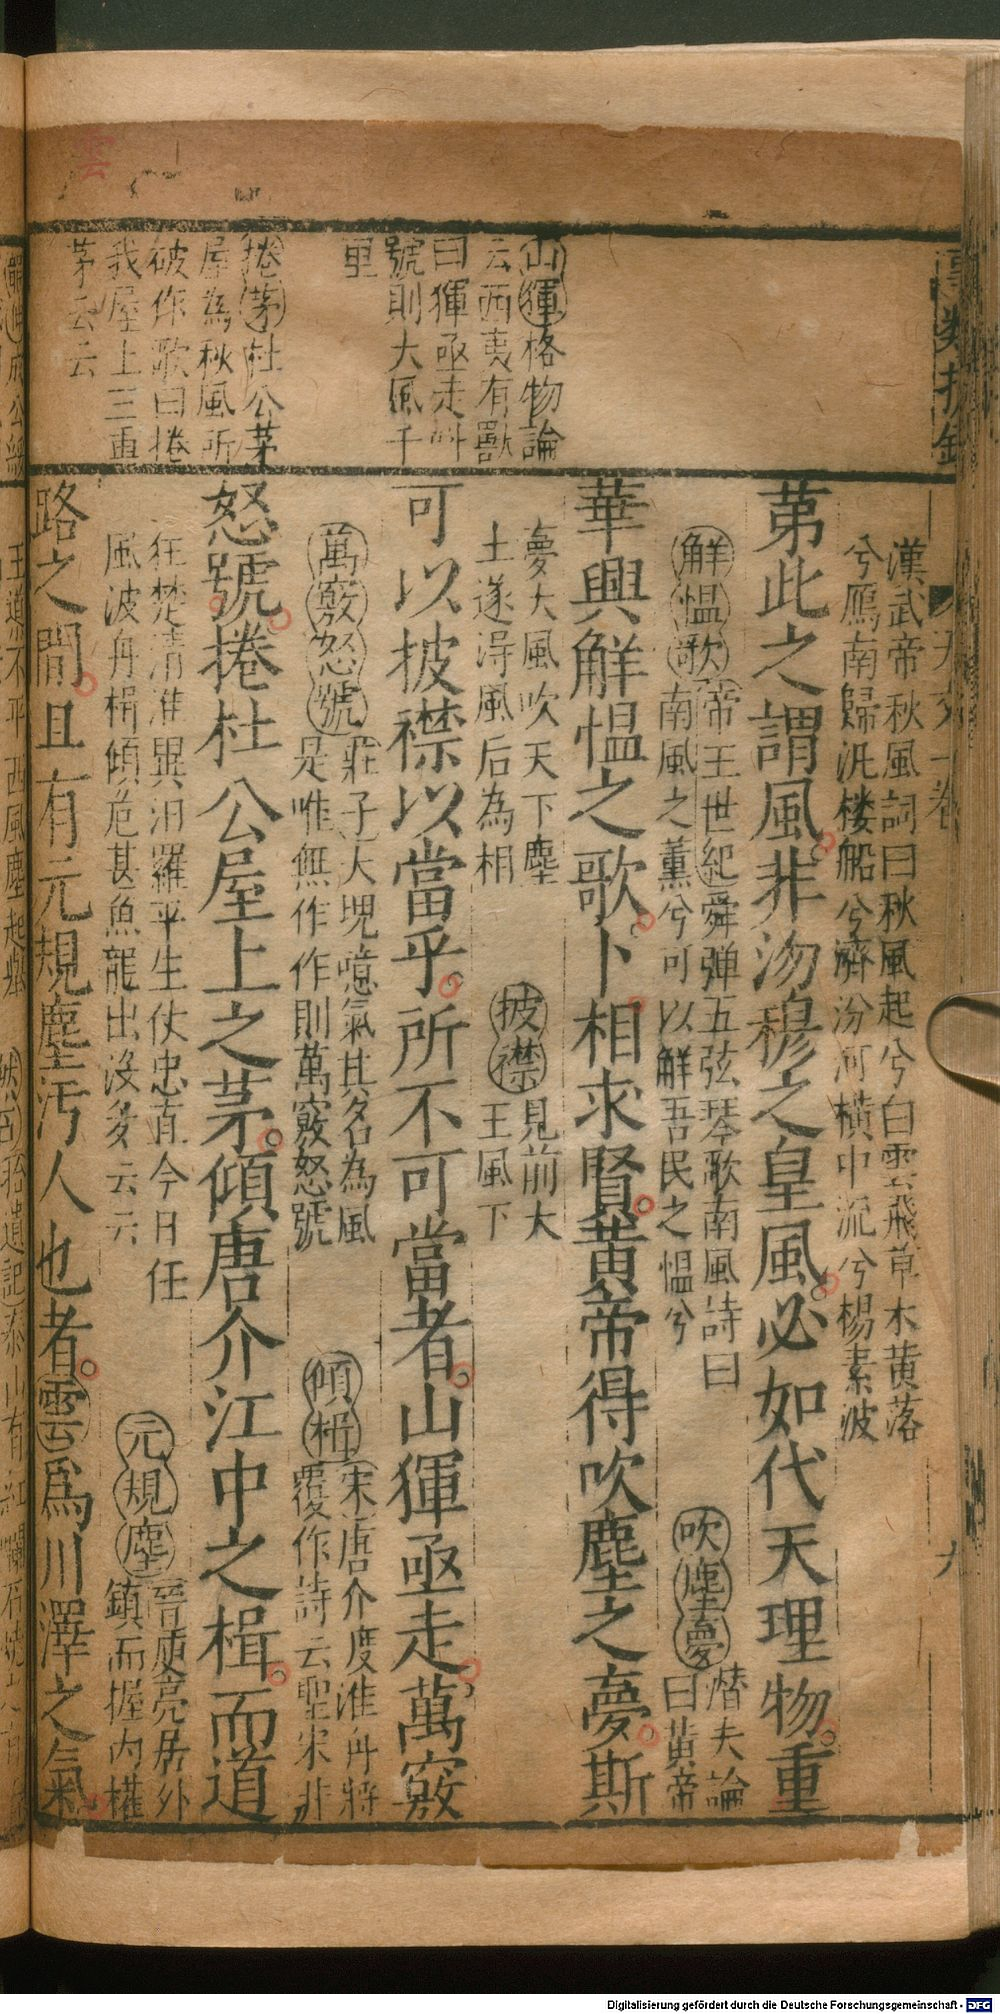 山㺔格物論
云西夷有獸
曰㺔亟走叫
號則大風千
里
捲茅杜公茅
屋為秋風所
破作歌曰捲
我屋上三重
茅云云
漢武帝秋風詞曰秋風起兮白雲飛草木黃落
兮鴈南歸汎楼船兮濟汾河橫中流兮楊素波
苐此之謂風非沕穆之皇風必如代天理物重
解慍歌帝王世紀舜弹五弦琴歌南風詩曰
南風之薫兮可以解吾民之慍兮
吹塵夢潜夫論
曰黃帝
華興解慍之歌卜相求賢黃帝得吹塵之夢斯
夢大風吹天下塵
土遂淂風后為相
披襟見前大
王風下
可以披襟以當乎所不可當者山㺔亟走萬竅
萬竅怒號莊子大塊噫氣其名為風
是唯無作作則萬竅怒號
傾楫宋唐介度淮舟將
覆作詩云聖宋非
怒號捲杜公屋上之茅傾唐介江中之楫而道
狂楚清淮異汨羅平生仗忠直今日任
風波舟楫傾危甚魚龍出沒多云云
元規塵晉庾亮居外
鎮而握內權
路之間且有元規塵污人也者雲爲川澤之氣
雲
九
Digitalisierung gefördert durch die Deutsche Forschungsgemeinschaft - DFG